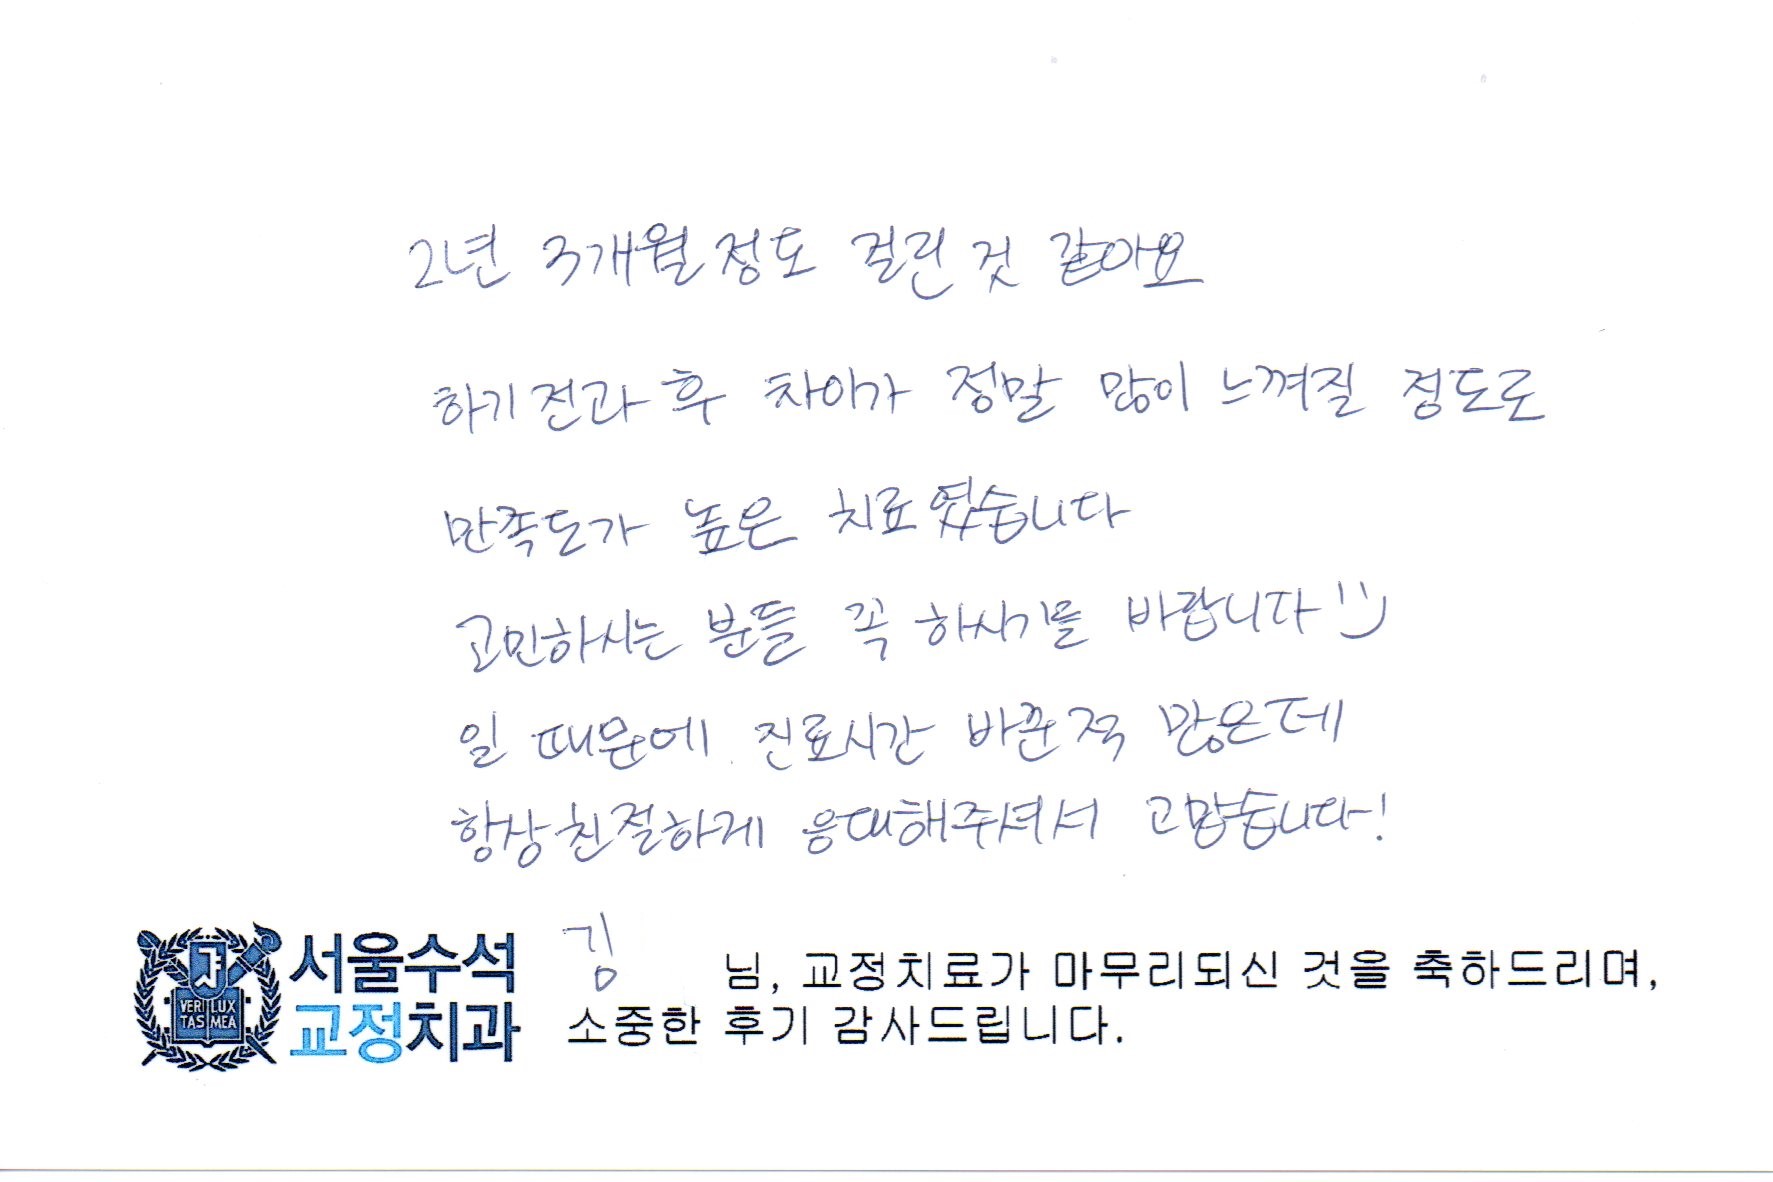 2년 3개월 정도 걸린 것 같아요
하기 전과 후 차이가 정말 많이 느껴질 정도로
만족도가 높은 치료였습니다
고민하시는 분들 꼭 하시기를 바랍니다 !!)
일 때문에 진료시간 바꾼적 많은데
항상 친절하게 응대해주셔서 고맙습니다!
VERI LUX
TAS MEA
서울수석
교정치과
김 님, 교정치료가 마무리되신 것을 축하드리며,
소중한 후기 감사드립니다.